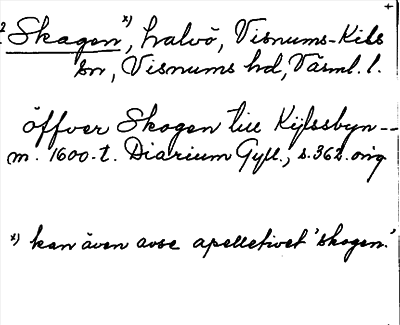 ? Skagen x), halvö, Visnums-Kils
sn, Visnums hd, Värml. l.
öffver Skogen till Kijlssbyn--
m. 1600-t. Diarium Gyll., s. 362. orig.
x) kan även avse apelletivet 'skogen.'